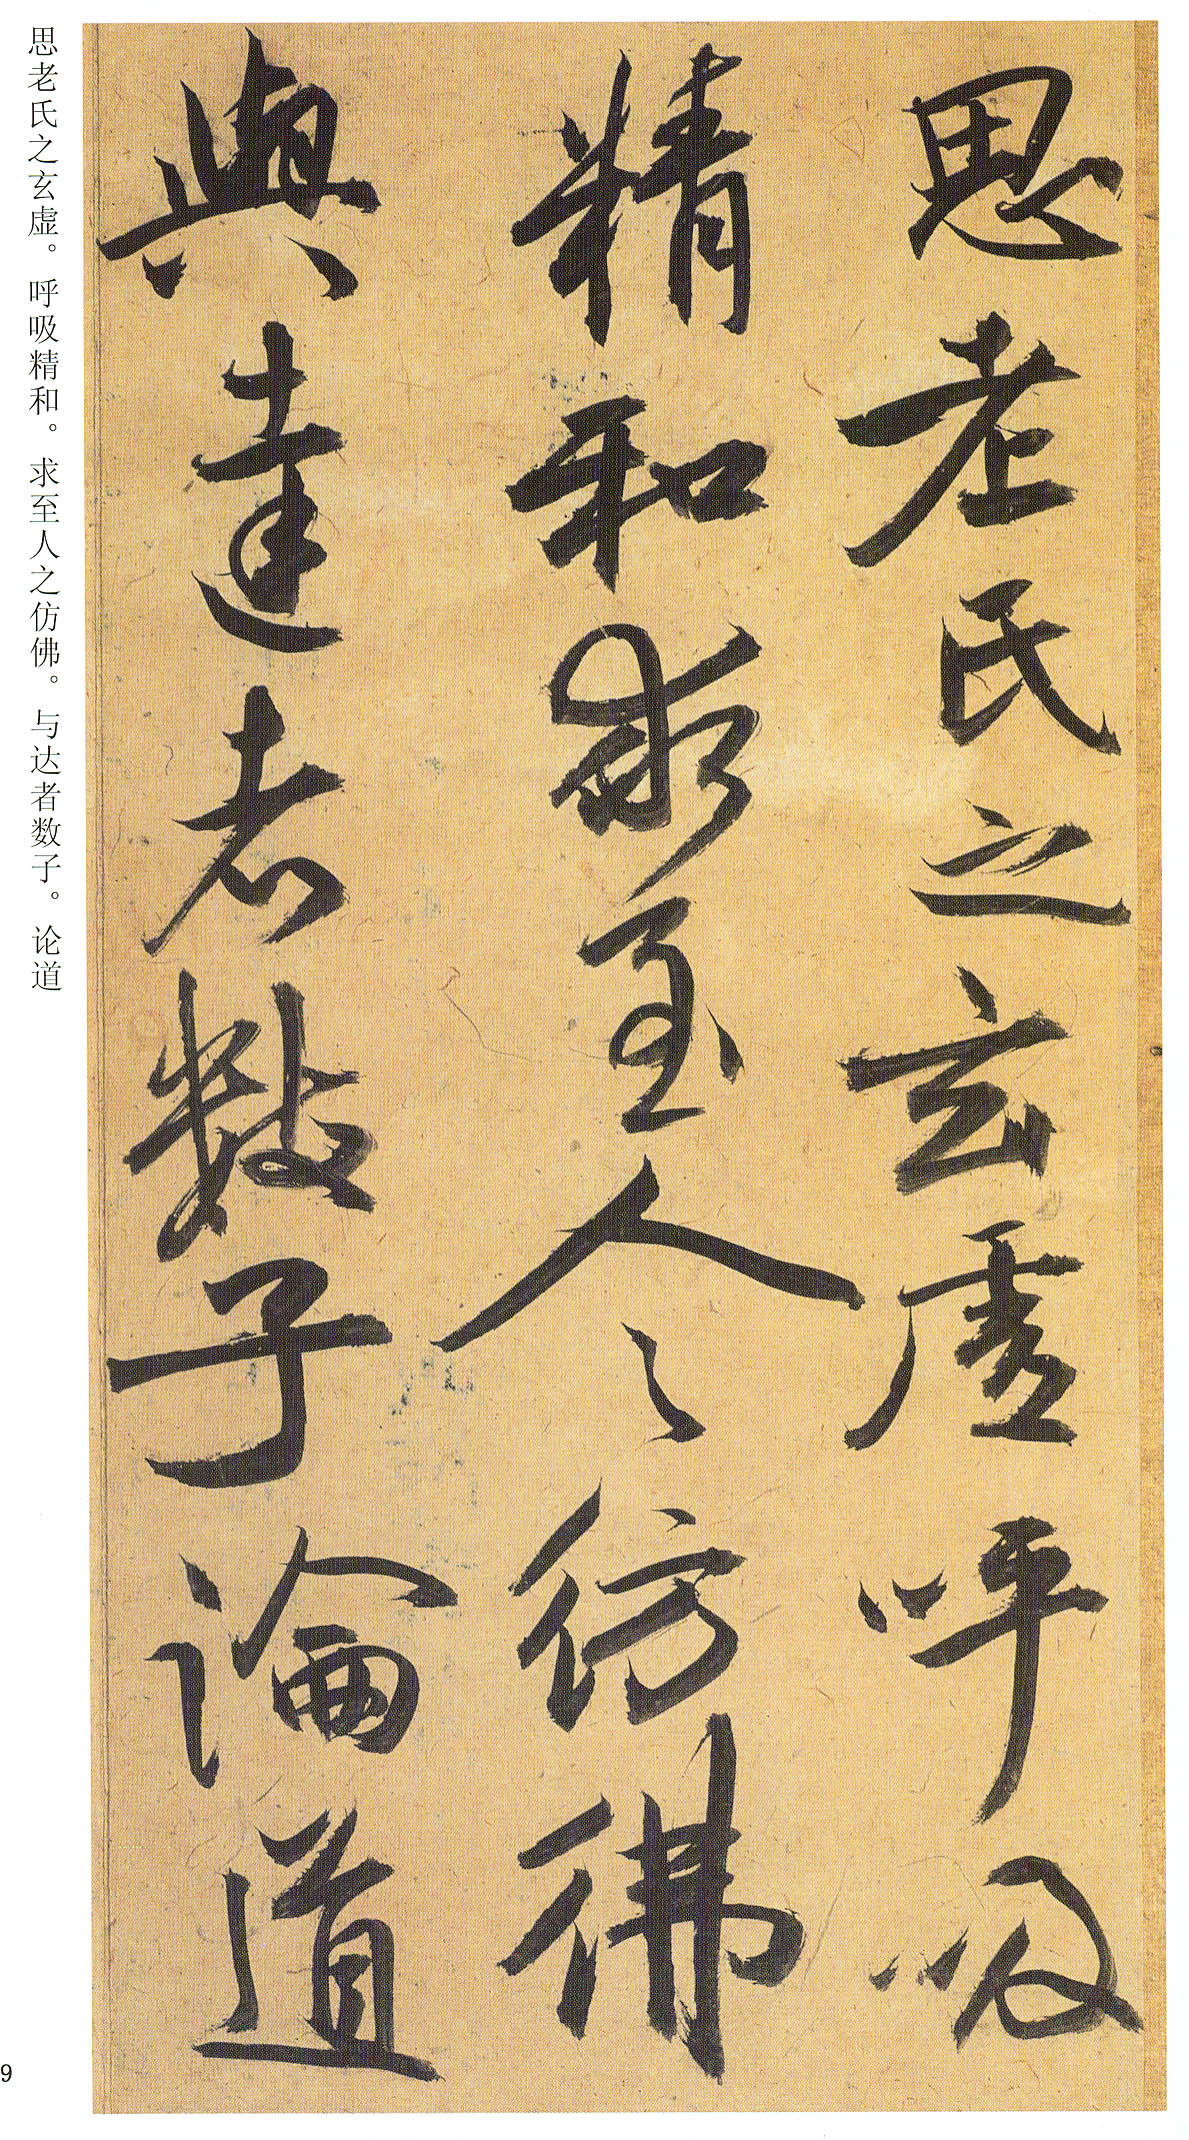 思老氏之玄虚呼吸
精和求至人之仿佛
與達者數子論道
思老氏之玄虚。呼吸精和。求至人之仿佛。与达者数子。论道
9